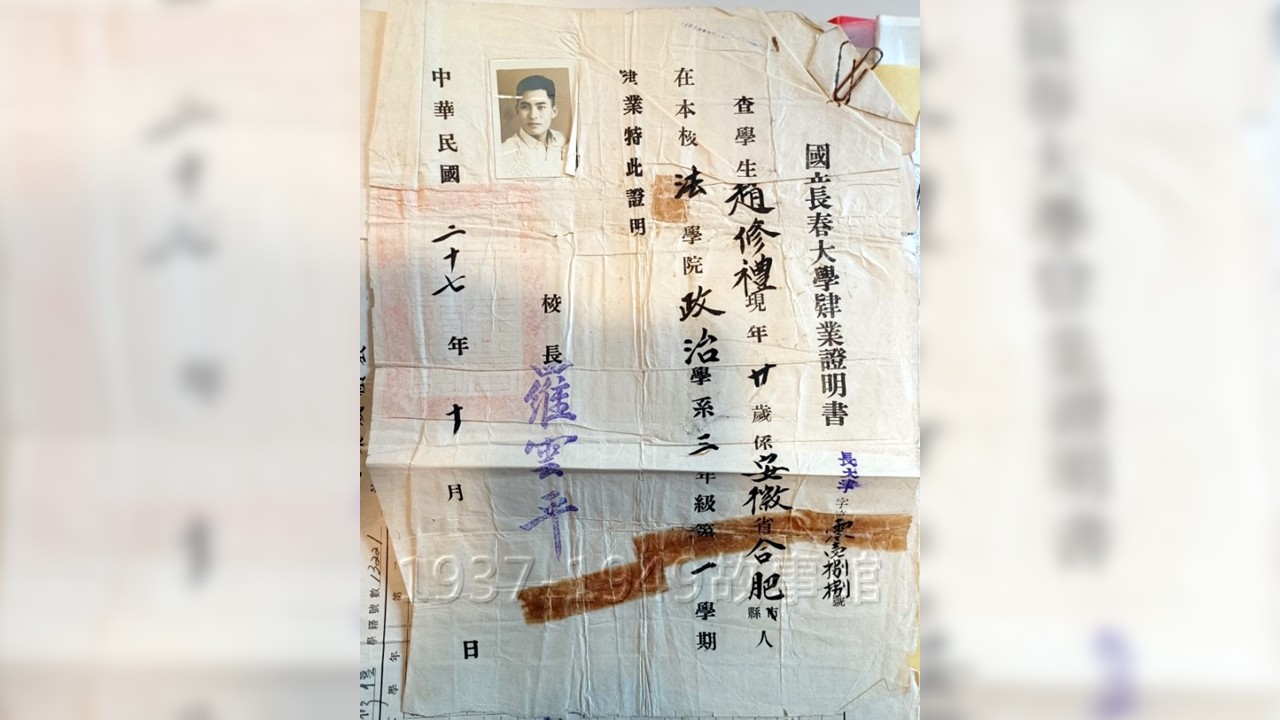 國立長春大學肄業證明書
長大津字第零壹捌捌號
查學生趙修禮現年廿歲係安徽省合肥市縣人
在本校法學院政治學系三年級第一學期
肄業特此證明
校長羅雲平
中華民國三十七年十月 日
1937-1949故事館
學籍號數
學年